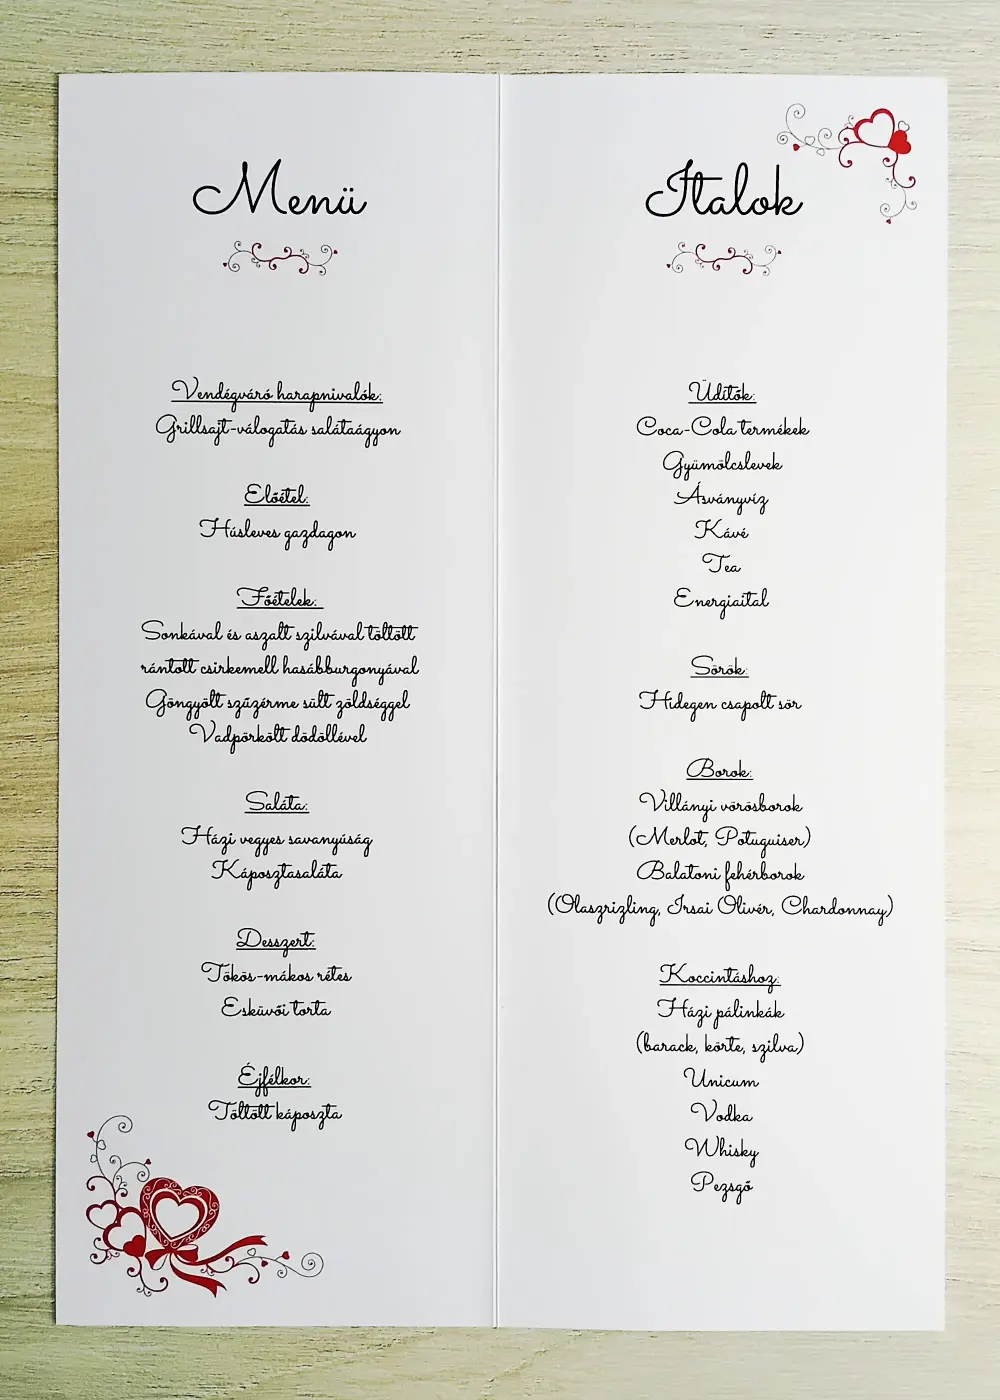 Menü
Vendégváró harapnivalók:
Grillsajt-válogatás salátaágyon
Előétel:
Húsleves gazdagon
Főételek:
Sonkával és aszalt szilvával töltött
rántott csirkemell hasábburgonyával
Göngyölt szűzérme sült zöldséggel
Vadpörkölt dödöllével
Saláta:
Házi vegyes savanyúság
Káposztasaláta
Desszert:
Tökös-mákos rétes
Esküvői torta
Éjfélkor:
Töltött káposzta
Italok
Üdítők:
Coca-Cola termékek
Gyümölcslevek
Ásványvíz
Kávé
Tea
Energiaital
Sörök:
Hidegen csapolt sör
Borok:
Villányi vörösborok
(Merlot, Potuguiser)
Balatoni fehérborok
(Olaszrizling, Irsai Olivér, Chardonnay)
Koccintáshoz:
Házi pálinkák
(barack, körte, szilva)
Unicum
Vodka
Whisky
Pezsgő